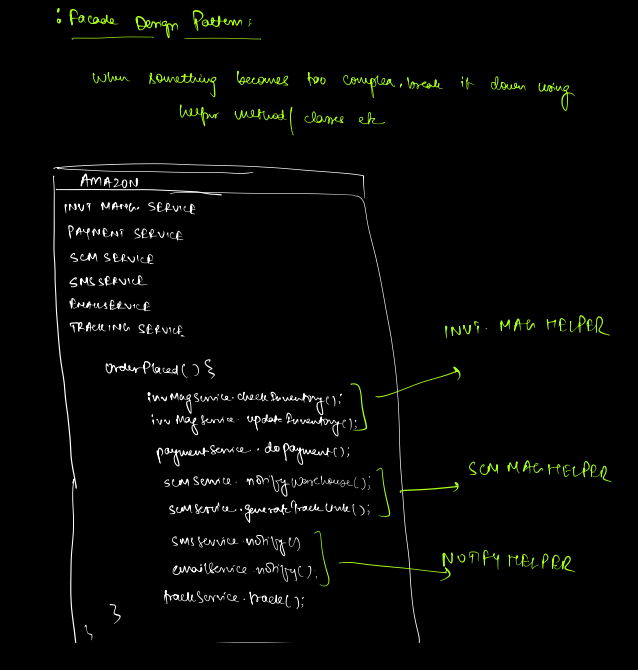 : Facade Design Pattern :
When something becomes too complex, break it down using
helper method / classes etc
AMAZON
INVT MANG. SERVICE
PAYMENT SERVICE
SCM SERVICE
SMS SERVICE
EMAIL SERVICE
TRACKING SERVICE
INVT. MAG HELPER
orderPlaced() {
invMagService.checkInventory();
invMagService.updateInventory();
paymentService.doPayment();
SCM MAG HELPER
scmService.notifyWarehouse();
scmService.generateTrackLink();
smsService.notify()
NOTIFY HELPER
emailService.notify().
trackService.track();
}
}